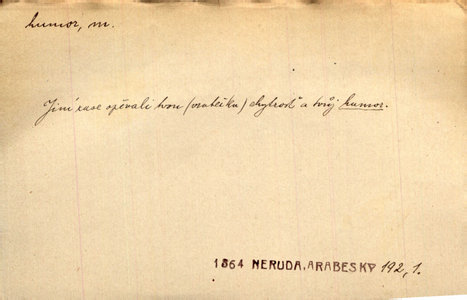 humor, m.
Jiní zase opěvali tvou (vrabčíku) chytrosť a tvůj humor.
1864 NERUDA, ARABESKY 192, 1.